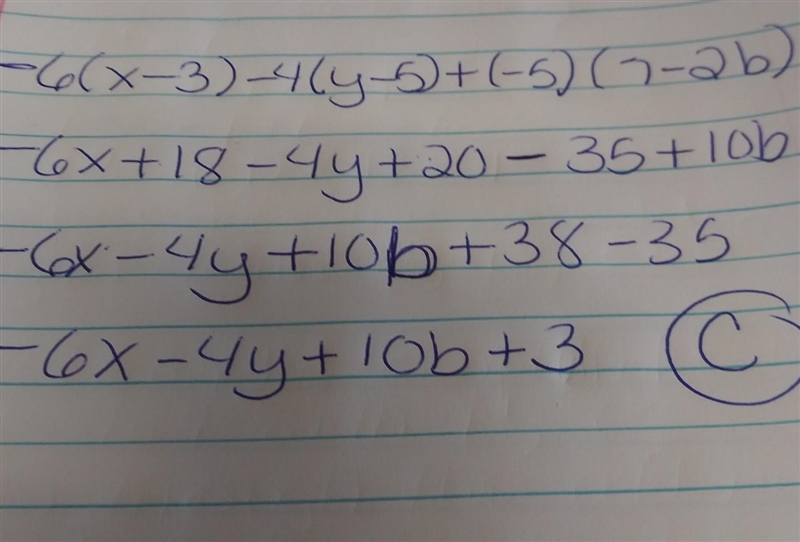 -6(x-3)-4(y-5)+(-5)(7-2b)
-6x+18-4y+20-35+10b
-6x-4y+10b+38-35
-6x-4y+10b+3 C